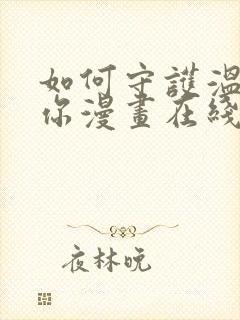 如何守護溫
你漫畫在綫
夜林晚